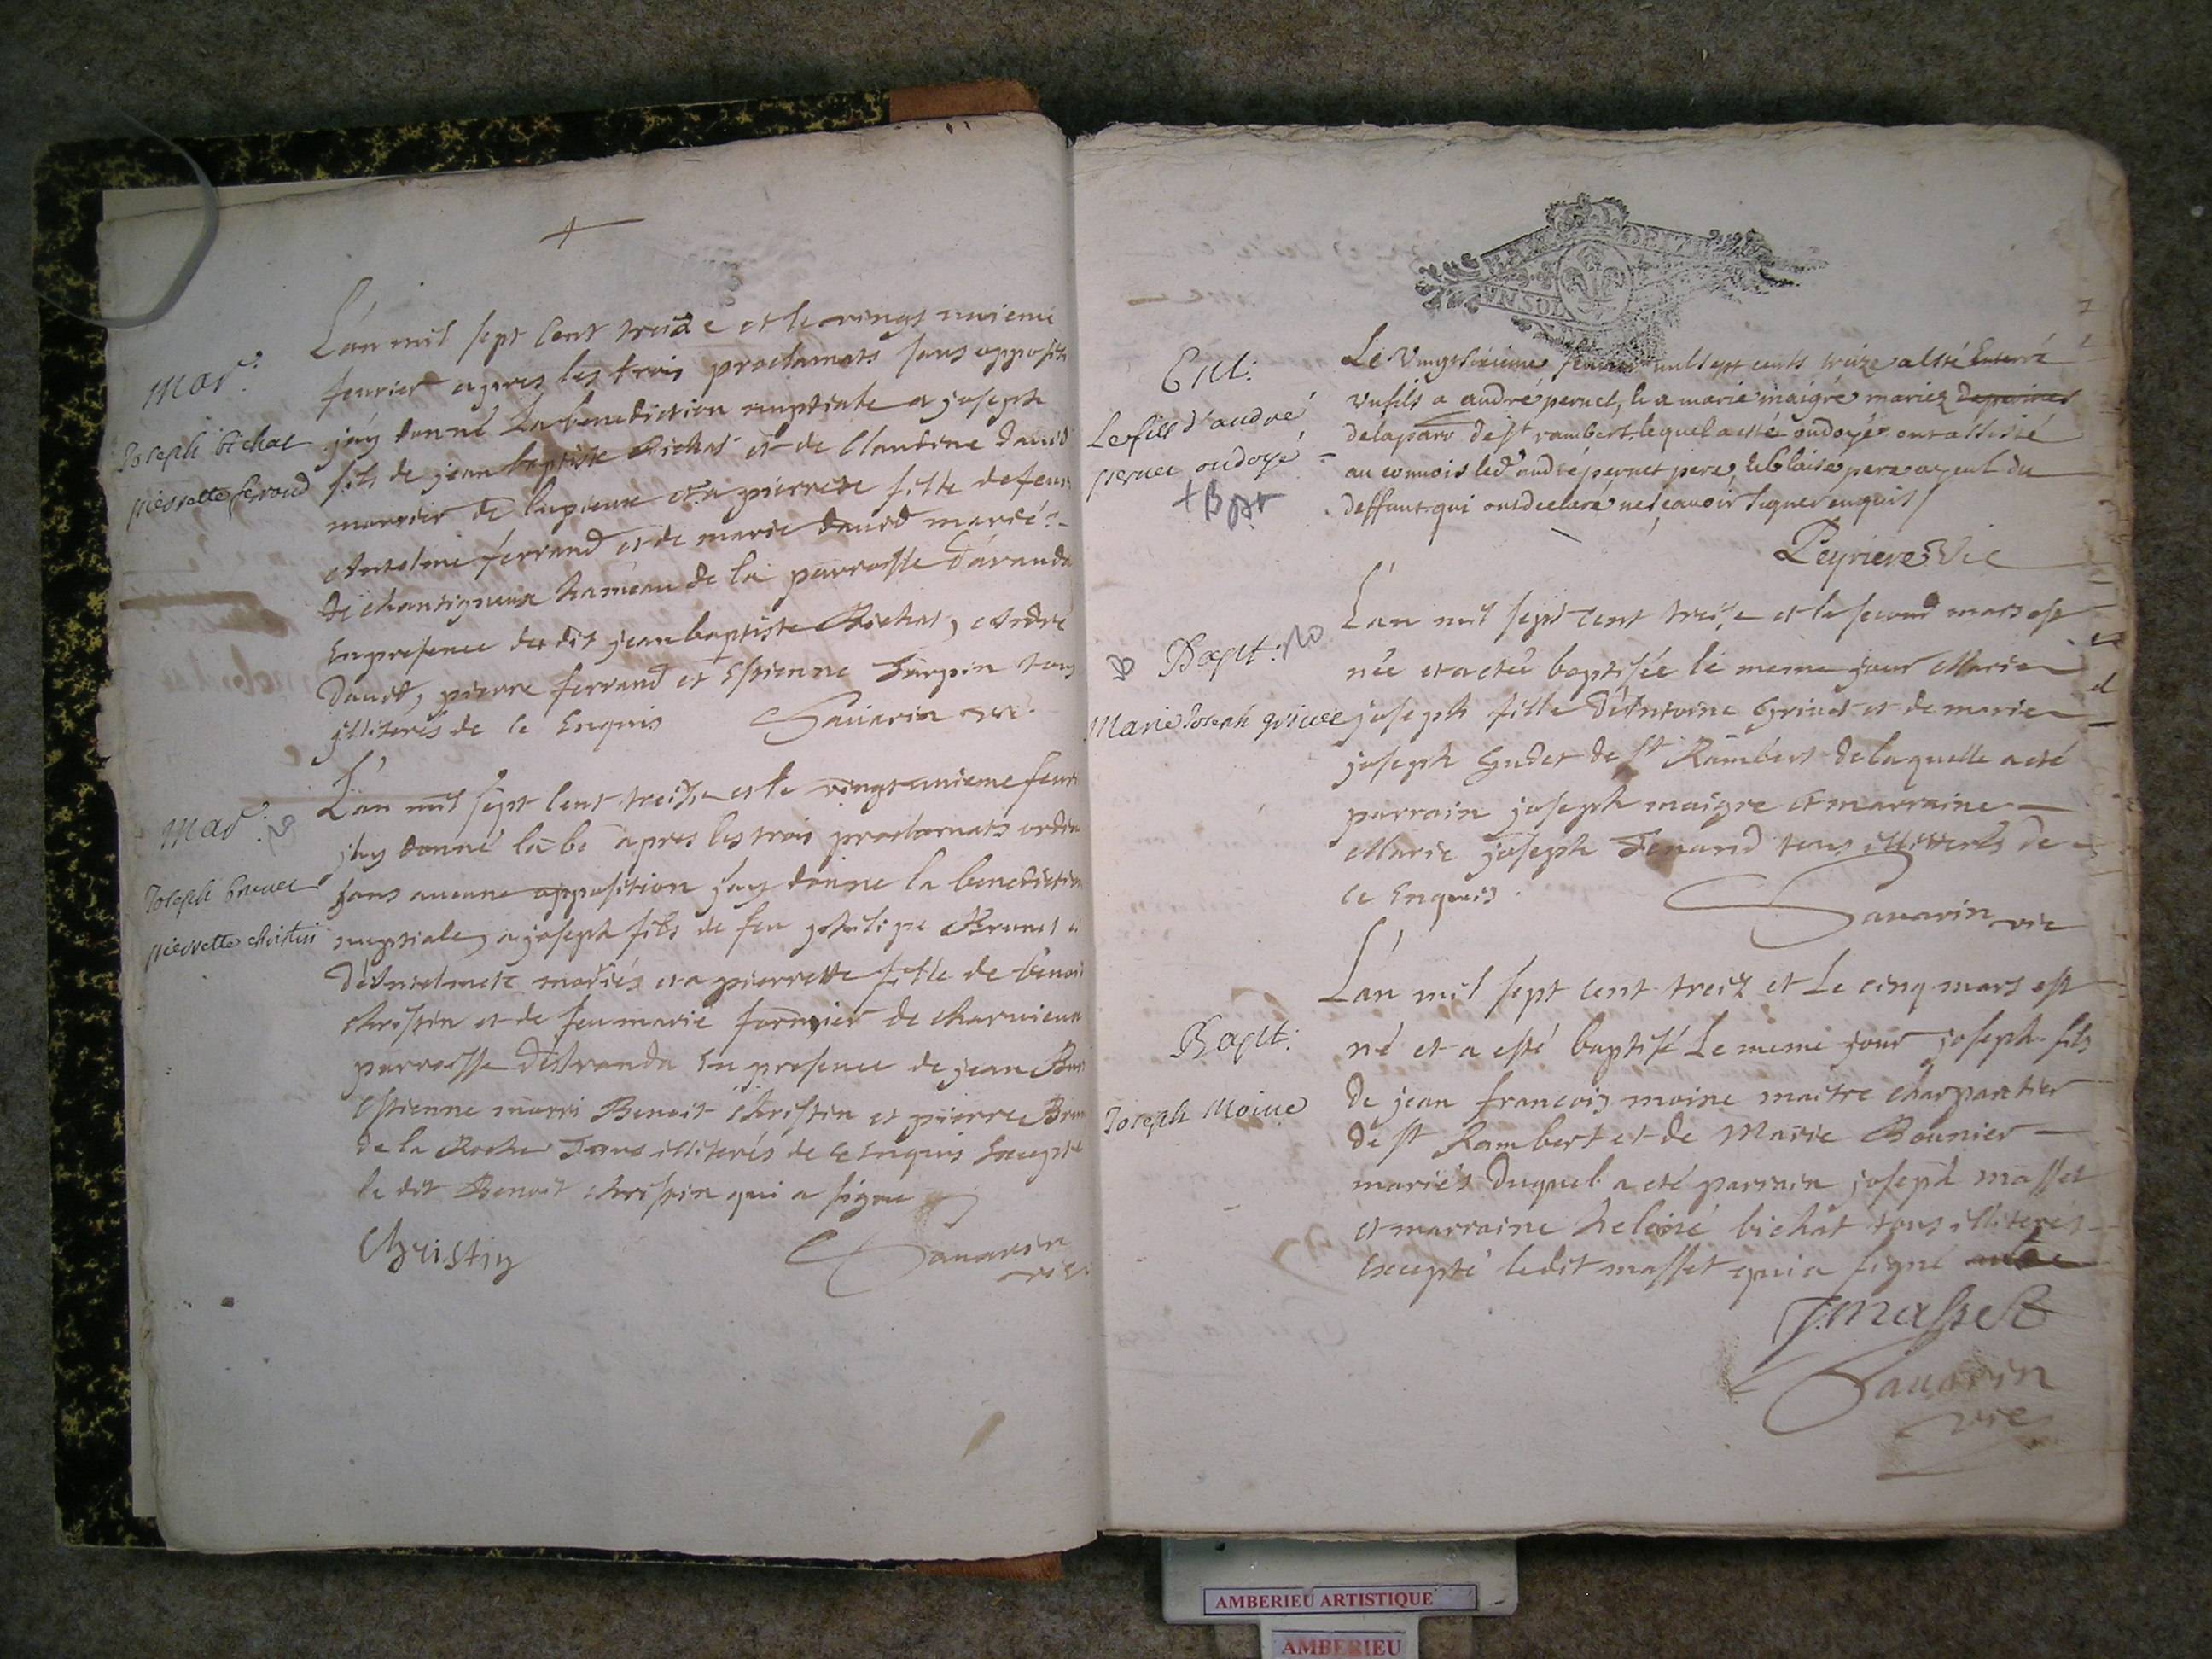 Mar:
Joseph bichat
pierrette ferrand
L'an mil sept cent treize et le vingt unieme
feurier apres les trois proclamats sans oppositi
j'ay donné la benediction nuptiale a joseph
fils de jean baptiste Bichat et de Claudine dauid
et a pierrette fille de feu
ferrand et de marie dauid mariés
de chantigneux hameau de la parroisse d'aranda
En presence du dit jean baptiste Bichat, Andre
Dauid, pierre ferrand et Estienne Turpin tous
jlliterés de ce Enquis Sauarin vic.
Mar:
Joseph brunet
pierrette christin
L'an mil sept cent treize et le vingt unieme feuri
j'ay donné la be apres les trois proclamats ordin
sans aucune opposition j'ay donne la benediction
nuptiale, a joseph fils de feu philipe Brunet
mariés et a pierrette fille de benoit
christin et de feu marie fornier de
parroisse d'Aranda En presence de jean
Estienne marri Benoit christin et pierre Brun
de la Roche Tous illiterés de ce Enquis Excepte
le dit Benoit christin qui a signe
Christin
Sauarin
vic
VN SOL
DEVX
Ent:
Le fils d'andré
pernet ondoyé
+ Bpt
Le Vingt sixieme feurier mil sept cents treize a esté Enterré
un fils a andré pernet, & a marie maigré mariez
de la paro de st rambert lequel a esté ondoyé ont assisté
au conuois led' andré pernet pere, & blaise pere ayeul du
deffunt qui ont declaré ne sçauoir signer enquis /
Peyrieres Vic
Bapt:
Marie Joseph griuet
L'an mil sept cent treise et le second mars est
née et a cté baptisée le meme jour Marie
joseph fille d'Antoine Griuet et de marie
joseph Gudet de st Rambert de laquelle a cté
parrain joseph maigre et marraine
Marie joseph Ferrand tous illiterés de
ce Enquis.
Sauarin vic
Bapt:
Joseph Moine
L'an mil sept cent treiz et Le cinq mars est
né et a esté baptisé Le meme jour joseph fils
de jean francois moine maitre charpantier
de st Rambert et de Marie Bounier
mariés Duquel a eté parrain joseph masset
et marraine heleine bichat tous illiterés
Excepté ledit masset qui a signé
J. Masset
Sauarin
vic
AMBERIEU ARTISTIQUE
AMBERIEU